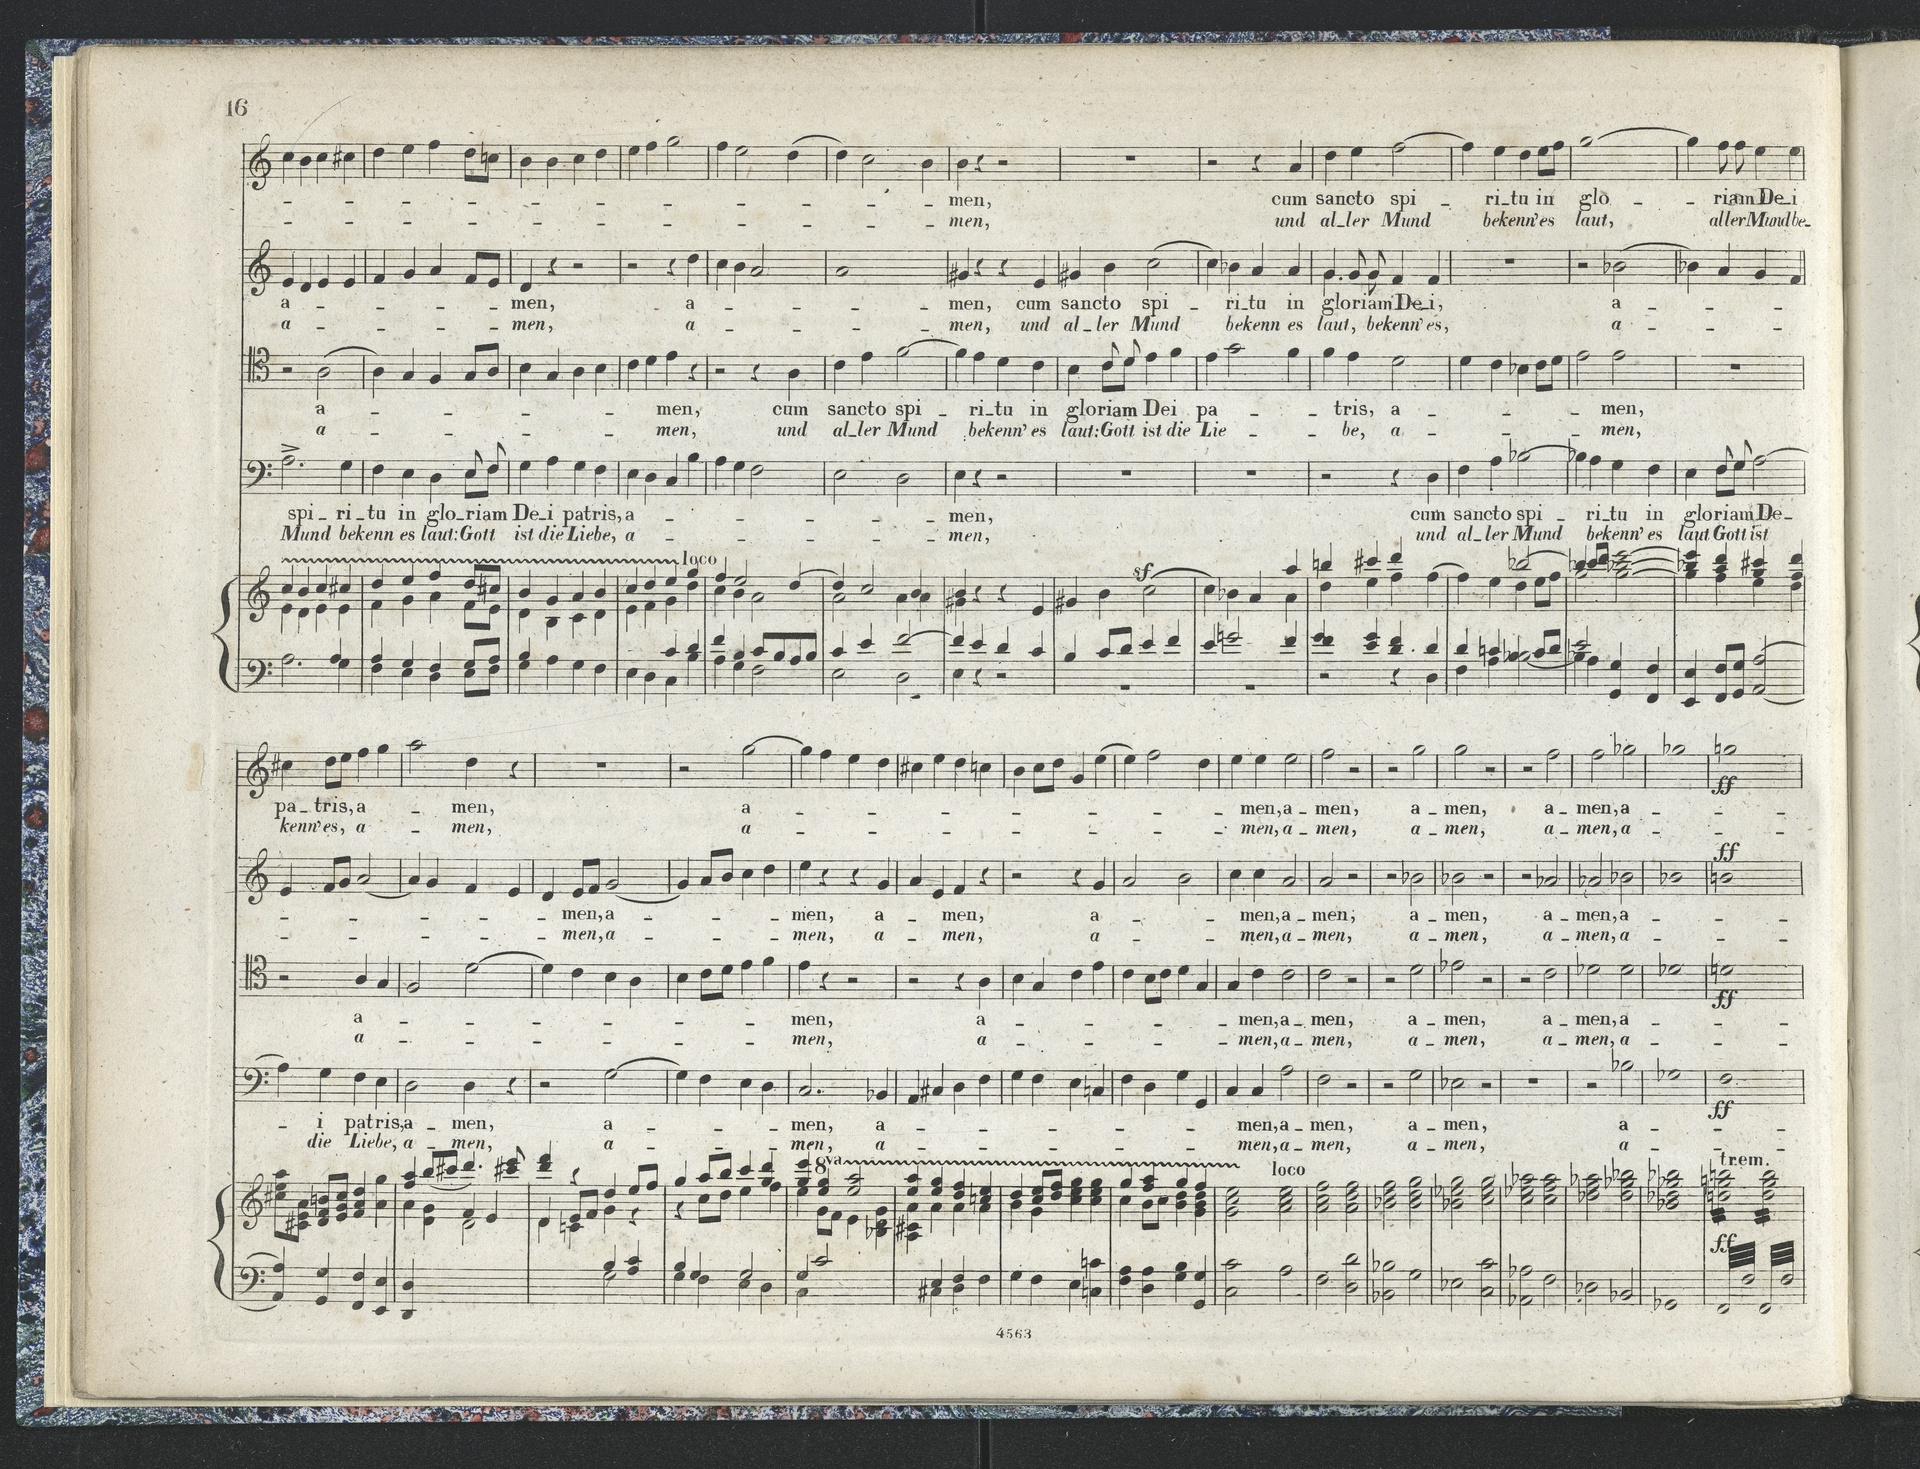 16
men, cum sancto spi - ri-tu in glo - riam De-i
men, und al-ler Mund bekenn'es laut, aller Mund be-
a - men, a - men, cum sancto spi - ri-tu in gloriam De-i, a -
a - men, a - men, und al-ler Mund bekenn es laut, bekenn' es, a -
a - men, cum sancto spi - ri-tu in gloriam Dei pa - tris, a - men,
a - men, und al-ler Mund bekenn' es laut: Gott ist die Lie - be, a - men,
spi - ri-tu in glo-riam De-i patris, a - men, cum sancto spi - ri-tu in gloriam De-
Mund bekenn es laut: Gott ist die Liebe, a - men, und al-ler Mund bekenn' es laut Gott ist
loco
sf
pa-tris, a - men, a - men, a - men, a - men, a - men, a -
kenn'es, a - men, a - men, a - men, a - men, a - men, a -
ff
ff
men, a - men, a - men, a - men, a - men, a - men, a - men, a -
men, a - men, a - men, a - men, a - men, a - men, a - men, a -
a - men, a - men, a - men, a - men, a - men, a -
a - men, a - men, a - men, a - men, a - men, a -
ff
i patris, a - men, a - men, a - men, a - men, a - men, a -
die Liebe, a - men, a - men, a - men, a - men, a - men, a -
ff
8va
loco
trem.
ff
4563